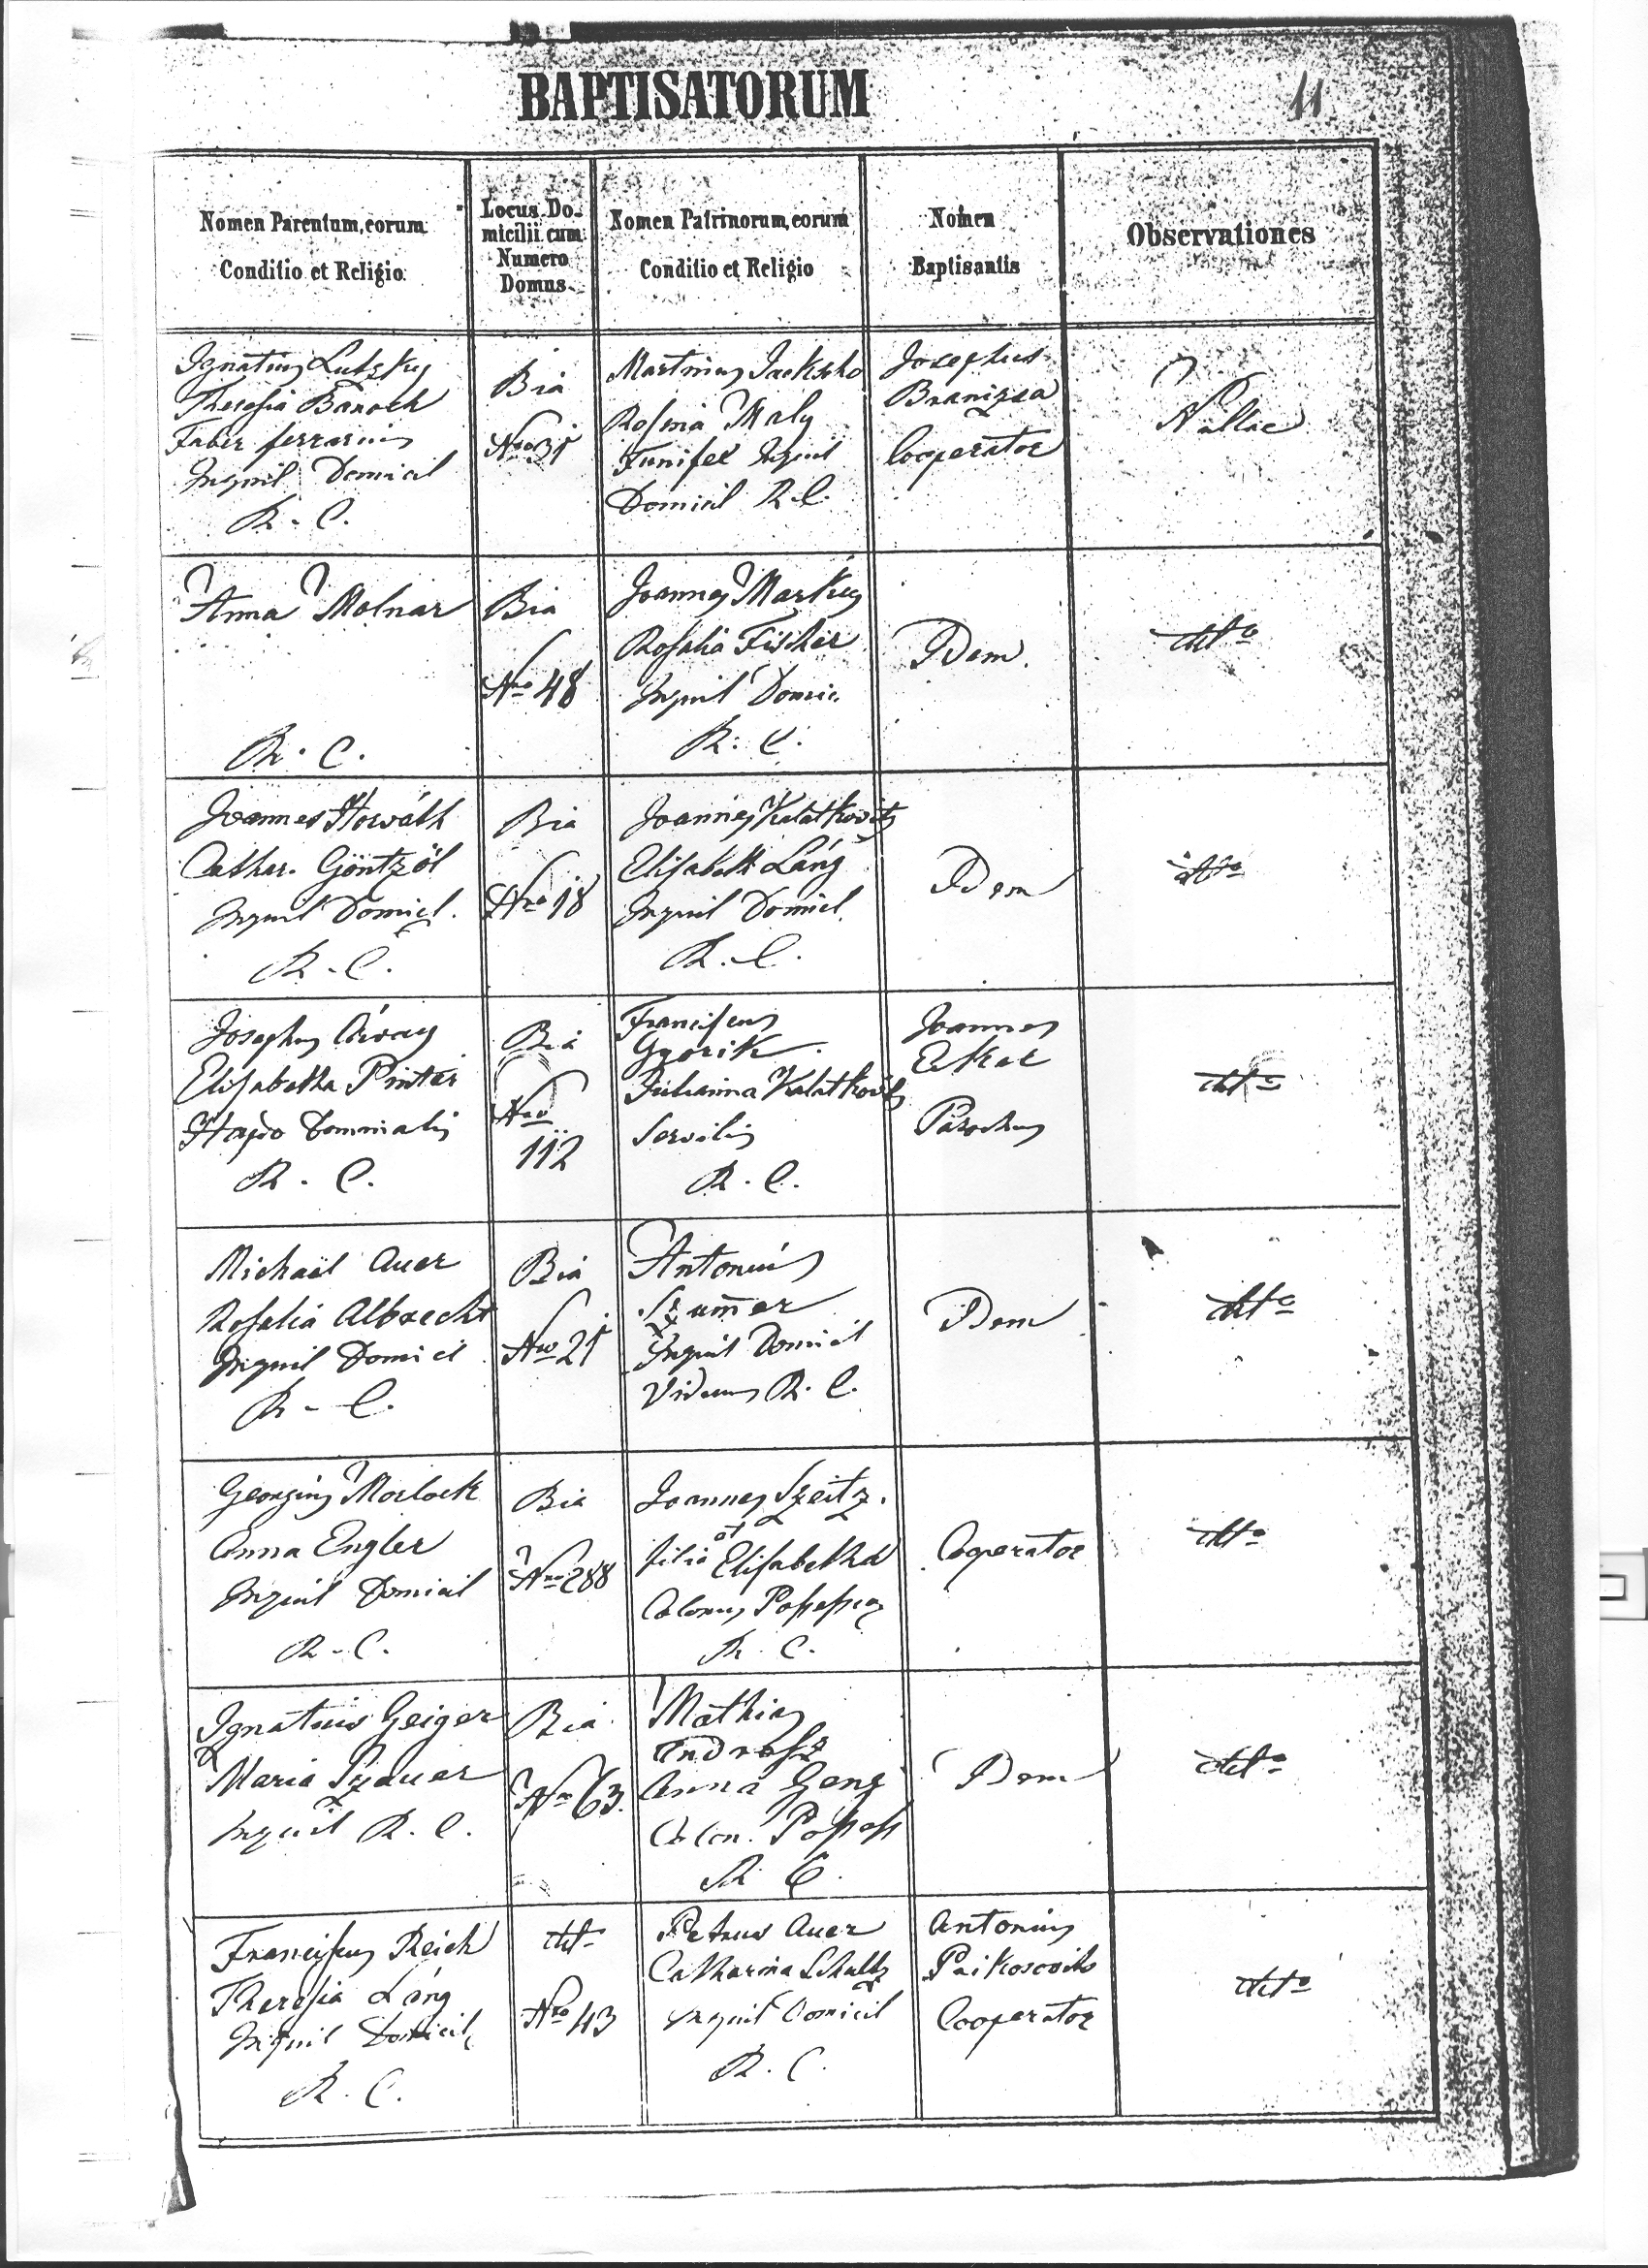 BAPTISATORUM
11
Nomen Parentum, eorum
Conditio et Religio
Locus Do-
micilii cum
Numero
Domus
Nomen Patrinorum, eorum
Conditio et Religio
Nomen
Baptisantis
Observationes
Ignatius Lutzky
Theresia Banoch
Faber ferrarius
Inquil Domicil
R. C.
Bia
Nro 31
Martinus Jackscho
Rosina Maly
Funifex Inquil
Domicil R. C.
Josephus
Branizsa
Cooperator
Nullae
Anna Molnar
R. C.
Bia
Nro 48
Joannes Markus
Rosalia Fischer
Inquil Domic.
R. C.
Idem.
dtto
Joannes Horváth
Cathar. Göntzöl
Inquil Domicl.
R. C.
Bia
Nro 18
Joannes Kalatkovits
Elisabeth Láng
Inquil Domicl.
R. C.
Idem
dtto
Josephus
Elisabetha Pinter
Dominalis
R. C.
Bia
Nro
112
Franciscus
Gyorik
Julianna Kalatkovits
Servilis
R. C.
Joannes
Parochus
dtto
Michael Auer
Rosalia Albrecht
Inquil Domicil
R. C.
Bia
Nro 21
Antonius
Szum̄er
Inquil Domicil
Viduus R. C.
Idem
dtto
Georgius Morlock
Anna Engler
Inquil Domicil
R. C.
Bia
Nro 288
Joannes Szeitz.
et
filia Elisabetha
Colonus Possessio
R. C.
Cooperator
dtto
Ignatius Geiger
Maria Szauer
Inquil R. C.
Bia
Nro 63.
Mathias
Andrasz
Anna Geng
Colon. Possess
R. C.
Idem
dtto
Franciscus Reich
Theresia Láng
Inquil Domicil
R. C.
dtto
Nro 43
Petrus Auer
Catharina Schultz
Inquil Domicil
R. C.
Antonius
Paikosovits
Cooperator
dtto